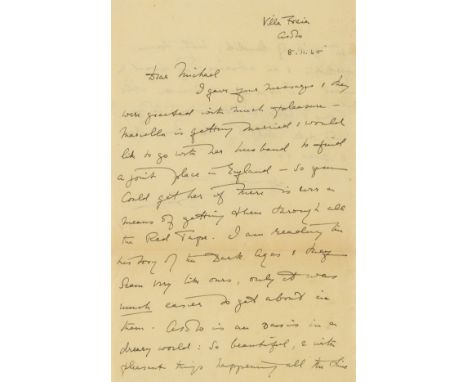 Villa Freia
Asolo
8.11.45
Dear Michael
I gave your messages & they
were greeted with much pleasure –
Marcella is getting married & would
like to go with her husband to find
a joint place in England – So you
could get her if there is ever a
means of getting them through all
the Red Tape. I am reading the
history of the Dark Ages & they
seem very like ours, only it was
much easier to get about in
them. Asolo is an Oasis in a
dreary world: So beautiful, & with
pleasant things happening all the time